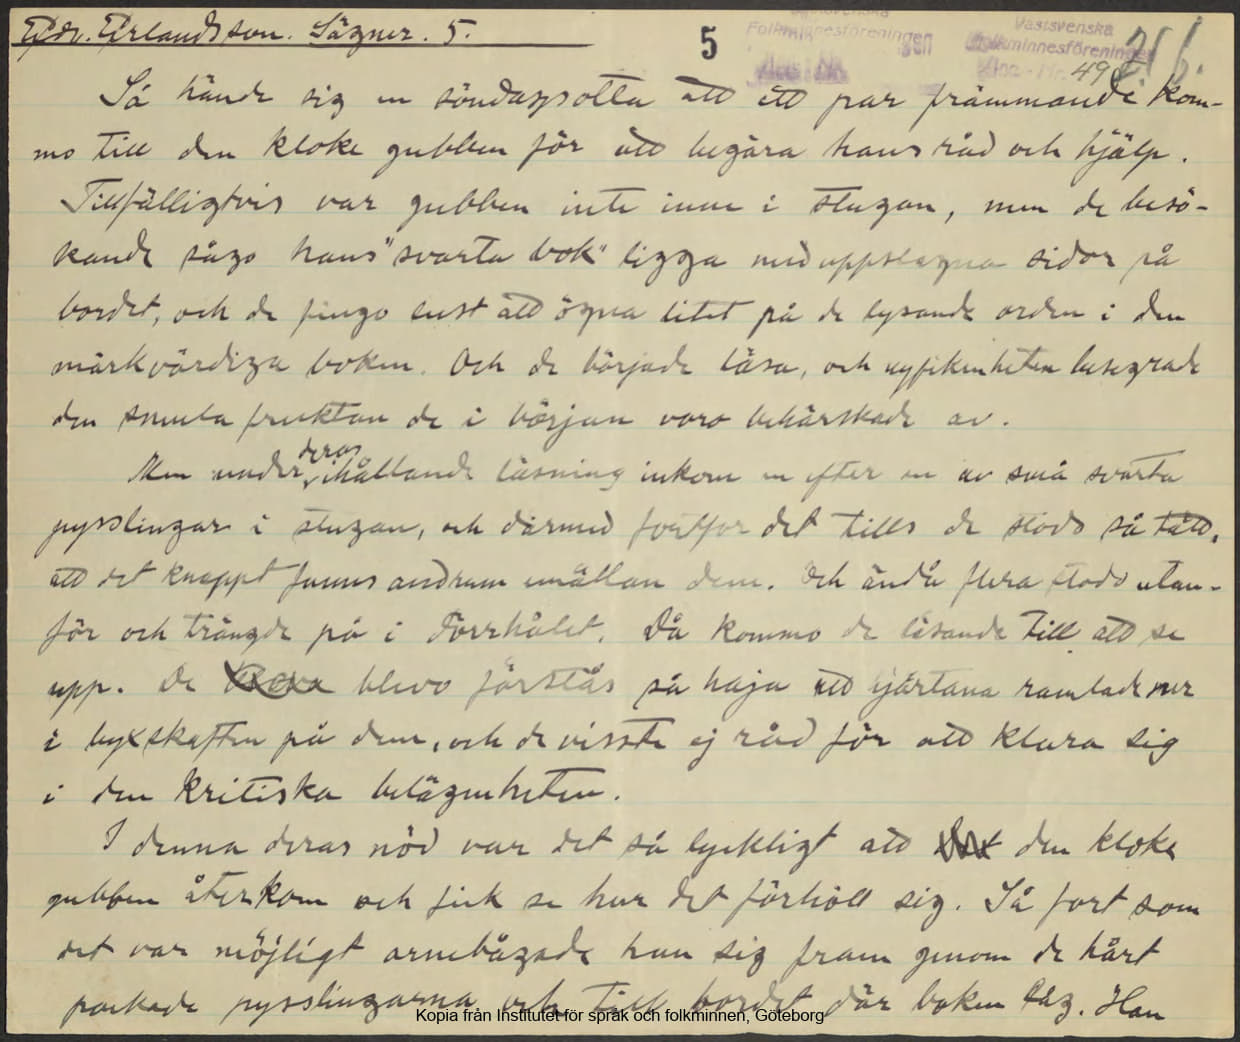 Edv. Erlandsson. Sägner. 5.
5
Folkminnesföreningen
Västsvenska
Folkminnesföreningen
49
Så hände sig en söndagsotta att ett par främmande kom-
mo till den kloke gubben för att begära hans råd och hjälp.
Tillfälligtvis var gubben inte inne i stugan, men de besö-
kande sågo hans "svarta bok" ligga med uppslagna sidor på
bordet, och de fingo lust att ögna litet på de lysande orden i den
märkvärdiga boken. Och de började läsa, och nyfikenheten besegrade
den smula fruktan de i början voro behärskade av.
Men under deras ihållande läsning inkom en efter en av små svarta
pysslingar i stugan, och därmed fortfor det tills de stodo så tätt,
att det knappt fanns andrum emällan dem. Och ändå flera stodo utan-
för och trängde på i dörrhålet. Då kommo de läsande till att se
upp. De blevo förstås så haja att hjärtana ramlade ner
i byxskaften på dem, och de visste ej råd för att klara sig
i den kritiska belägenheten.
I denna deras nöd var det så lyckligt att den kloke
gubben återkom och fick se hur det förhöll sig. Så fort som
det var möjligt armbågade han sig fram genom de hårt
packade pysslingarna och till bordet där boken låg. Han
Kopia från Institutet för språk och folkminnen, Göteborg